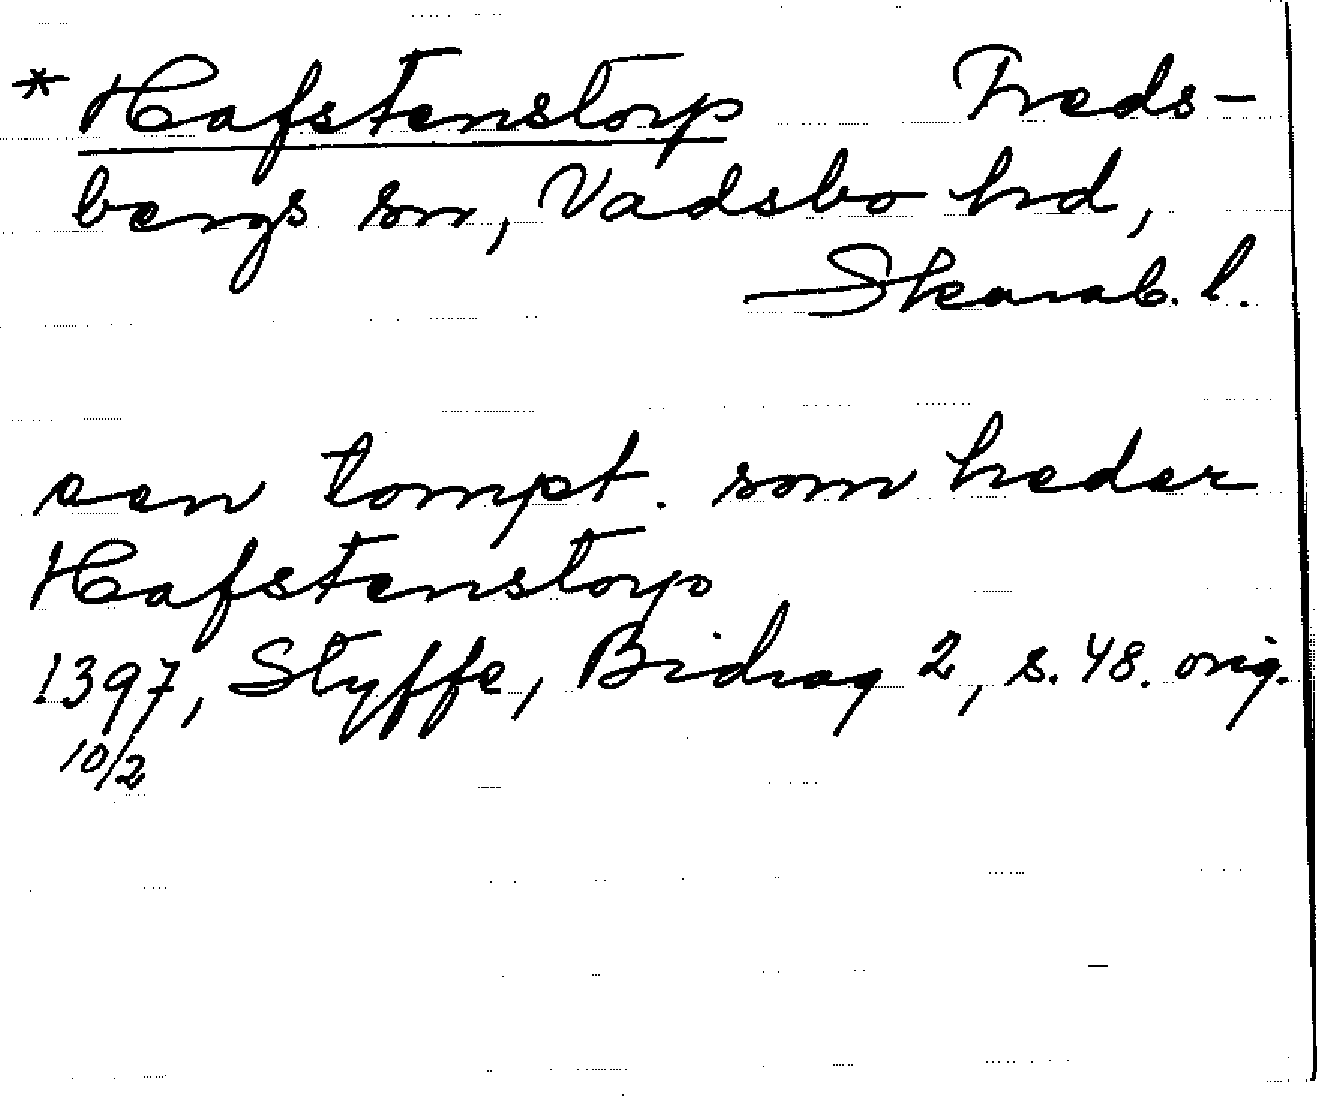 * Hafstenstorp Freds-
bergs sn, Vadsbo hd,
Skarab. l.
een tompt. som heder
Hafstenstorp
1397, Styffe, Bidrag 2, s. 48. orig.
10/2